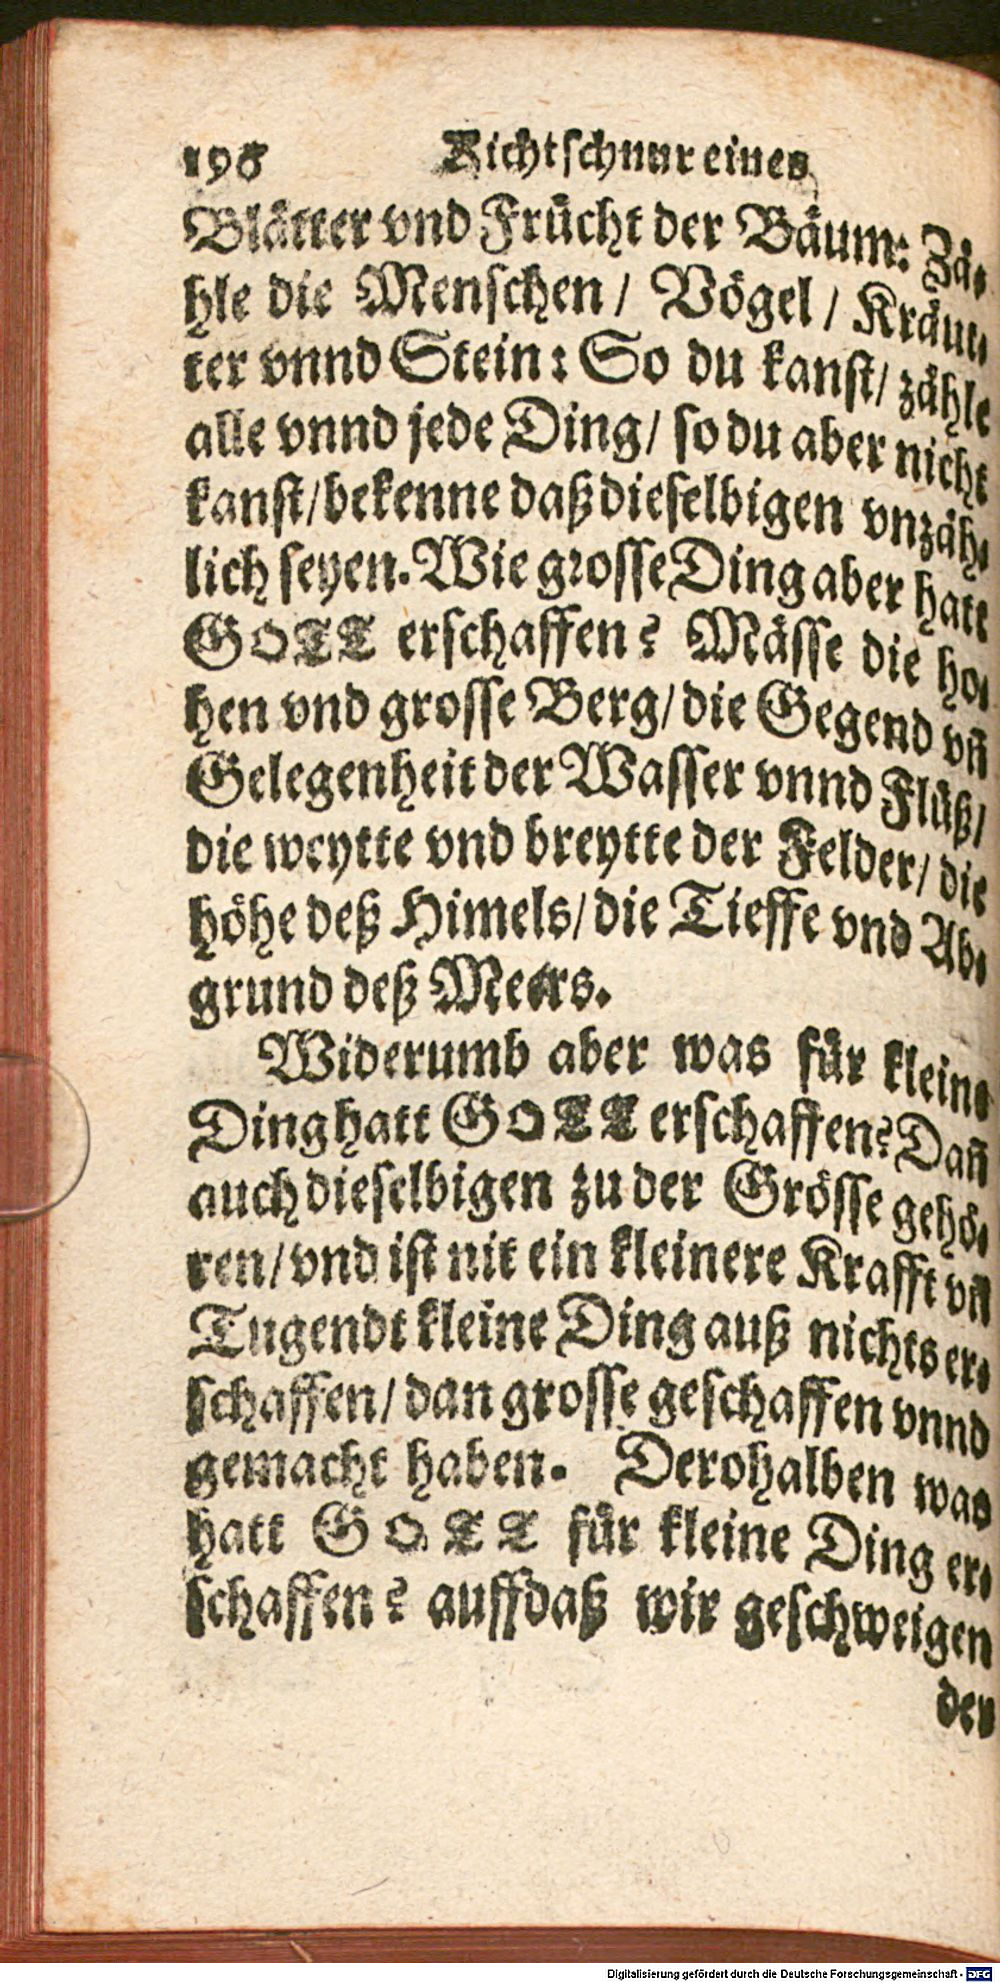 198 Richtschnur eines
Blätter vnd Frücht der Bäum: Zä-
hle die Menschen / Vögel / Kräut-
ter vnnd Stein: So du kanst / zähle
alle vnnd jede Ding / so du aber nicht
kanst / bekenne daß dieselbigen vnzäh-
lich seyen. Wie grosse Ding aber hatt
GOTT erschaffen? Mässe die ho-
hen vnd grosse Berg / die Gegend vñ
Gelegenheit der Wasser vnnd Flüß /
die weytte vnd breytte der Felder / die
höhe deß Himels / die Tieffe vnd Ab-
grund deß Meers.
Widerumb aber was für kleine
Ding hatt GOTT erschaffen? Dañ
auch dieselbigen zu der Grösse gehö-
ren / vnd ist nit ein kleinere Krafft vñ
Tugendt kleine Ding auß nichts er-
schaffen / dan grosse geschaffen vnnd
gemacht haben. Derohalben was
hatt GOTT für kleine Ding er-
schaffen? auffdaß wir geschweigen
der
Digitalisierung gefördert durch die Deutsche Forschungsgemeinschaft - DFG